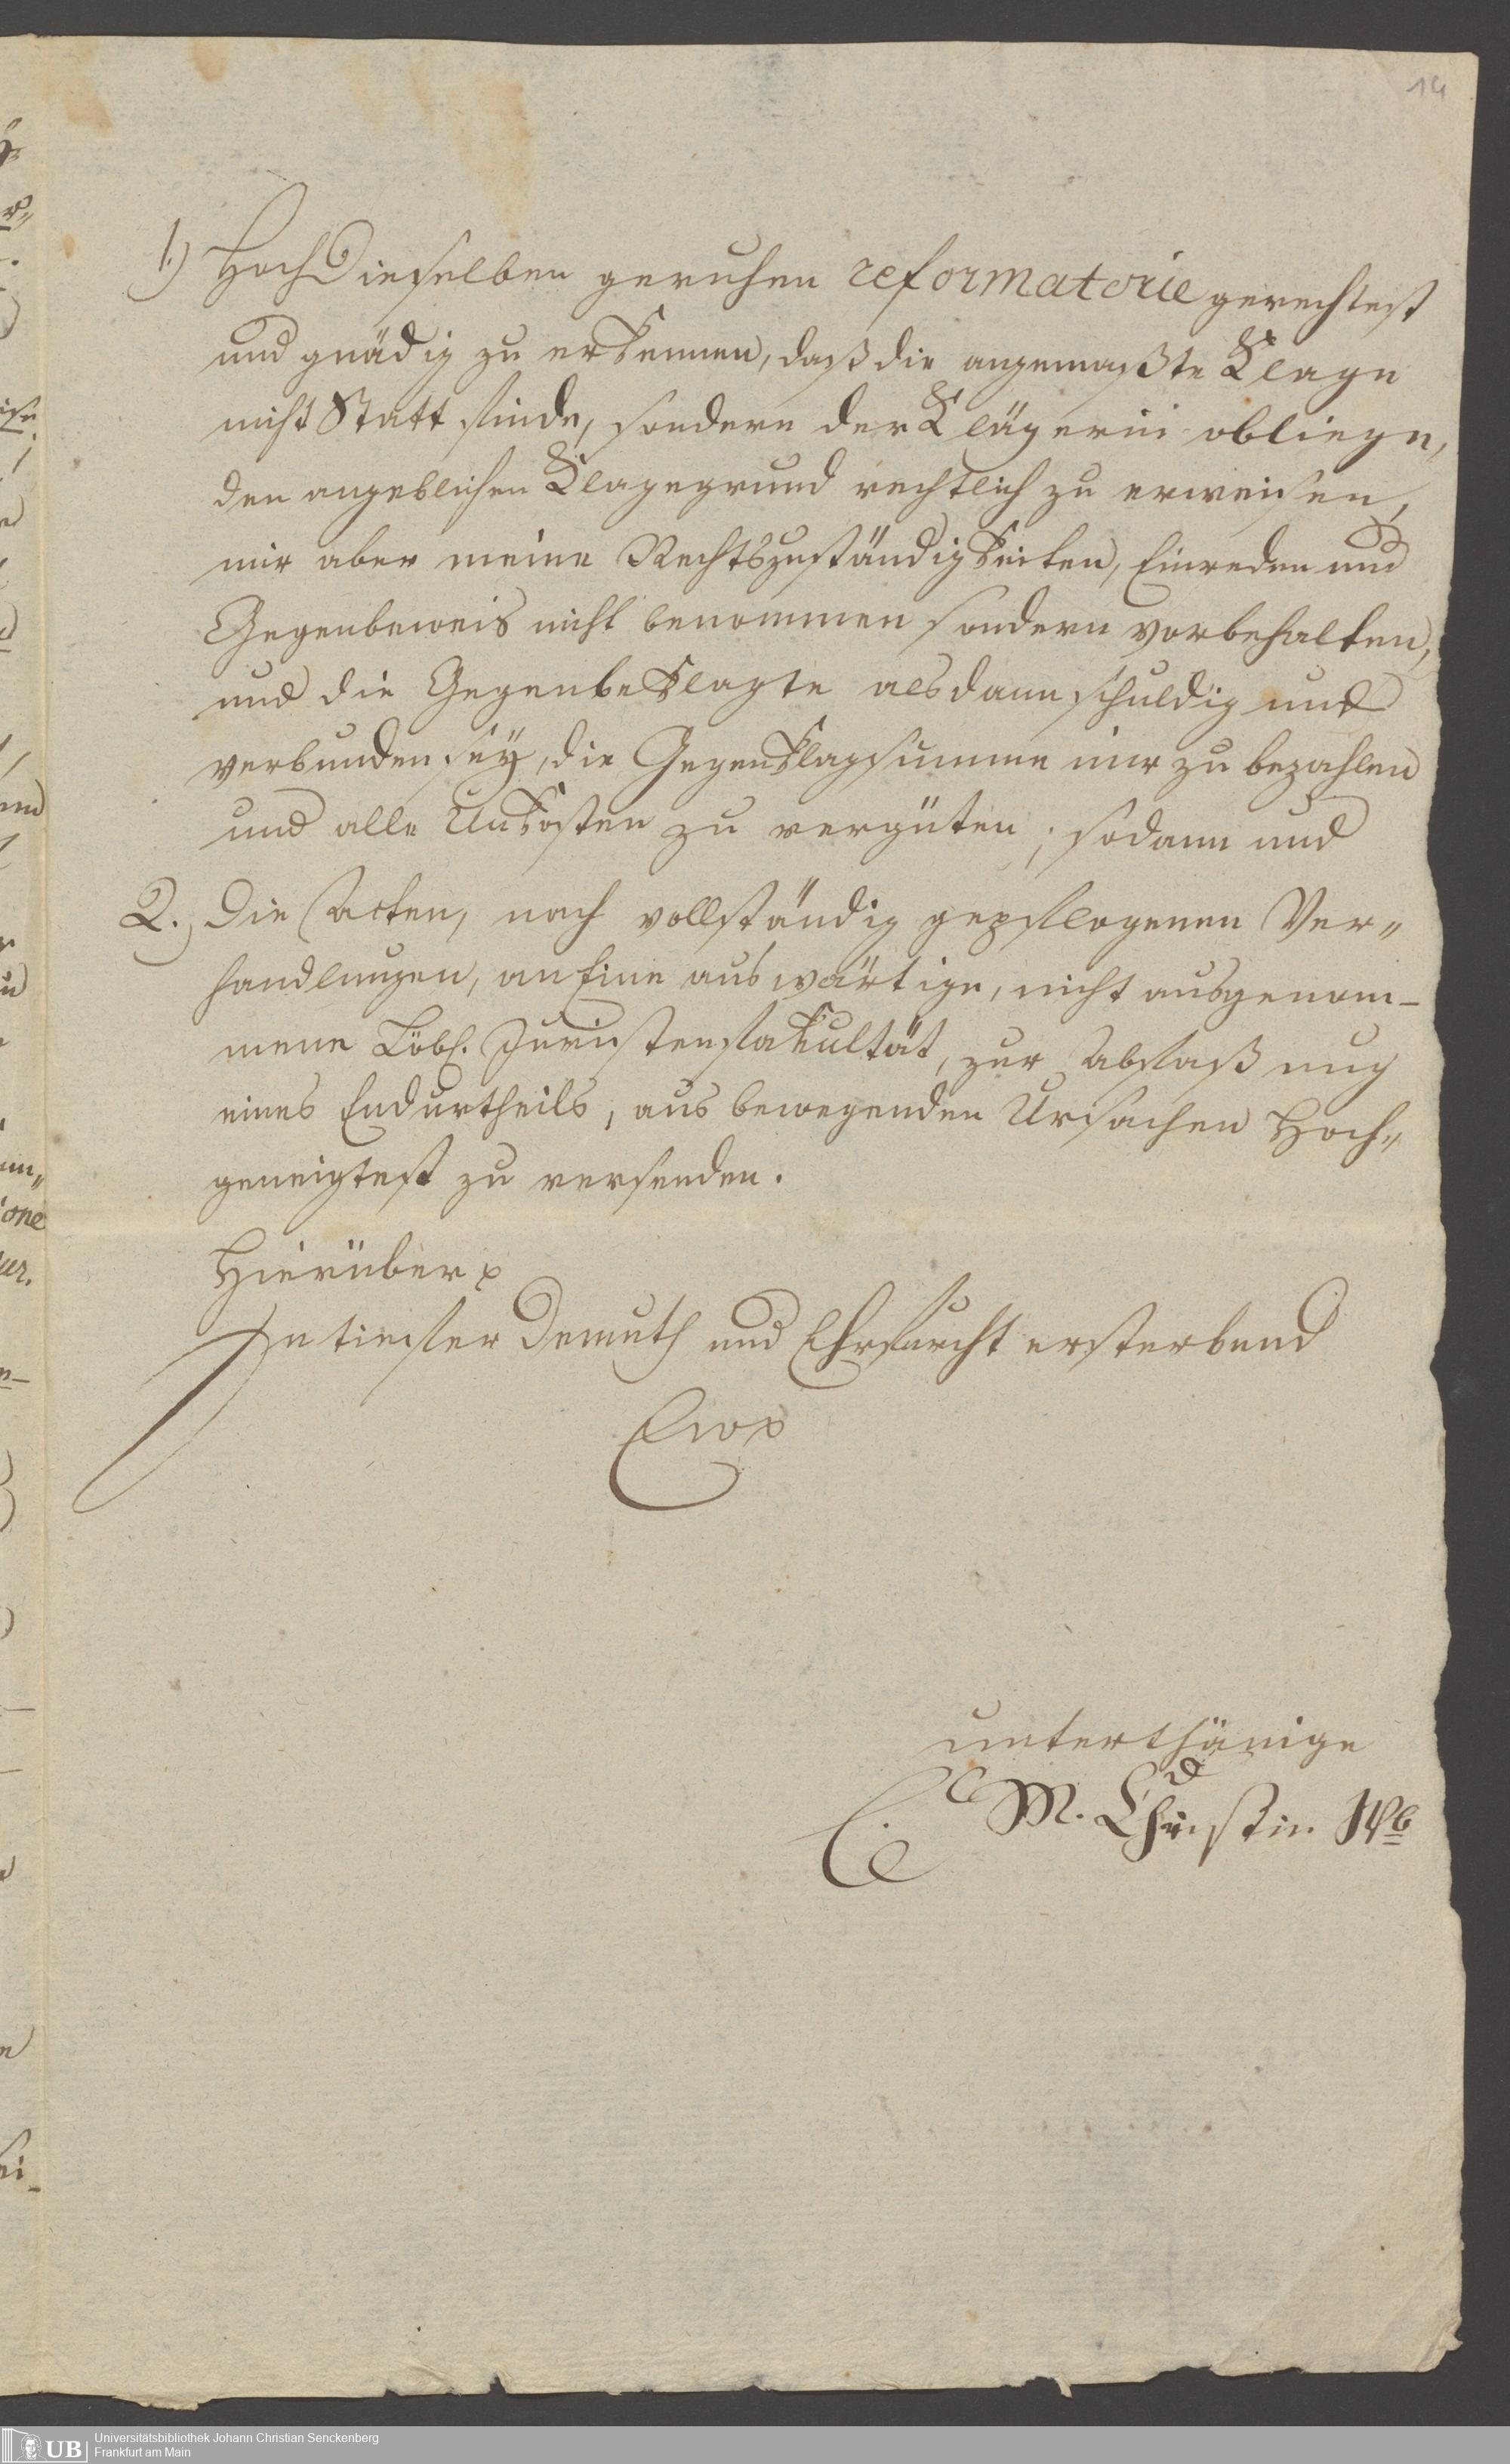 14
1.) HochDieselben geruhen reformatorie gerechtest
und gnädig zu erkennen, daß die angemaßte Klage
nicht Statt finde, sondern der Klägerin obliege,
den angeblichen Klagegrund rechtlich zu erweisen,
mir aber meine Rechtszuständigkeiten, Einreden und
Gegenbeweis nicht benommen sondern vorbehalten,
und die Gegenbeklagte alsdann schuldig und
verbunden sey, die Gegenklagsumme mir zu bezahlen
und alle Unkosten zu vergüten; sodann und
2.) Die Acten, nach vollständig gepflogenen Ver„
handlungen, an Eine auswärtige, nicht ausgenom-
mene Löbl. Juristenfakultät, zur Abfaßung
eines Endurtheils, aus bewegenden Ursachen Hoch„
geneigtest zu versenden.
Hierüber
In tiefster Demuth und Ehrfurcht ersterbend
Ew
unterthänige
M. Christin
UB Universitätsbibliothek Johann Christian Senckenberg
Frankfurt am Main